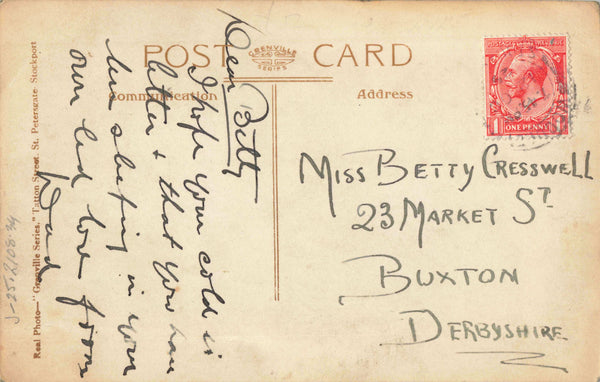 POST CARD
GRENVILLE
SERIES
Communication
Address
ONE PENNY
Dear Betty
I hope your cold is
better & that you have
been sleeping in your
own bed love from
Dad
MISS BETTY CRESSWELL
23 MARKET ST
BUXTON
DERBYSHIRE
Real Photo—"Grenville Series," Tatton Street, St. Petersgate Stockport